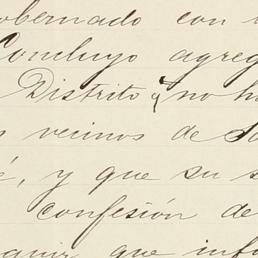 obernado con
Concluyo agreg
Distrito y no h
vecinos de S
é, y que su s
confesión de
quir que info